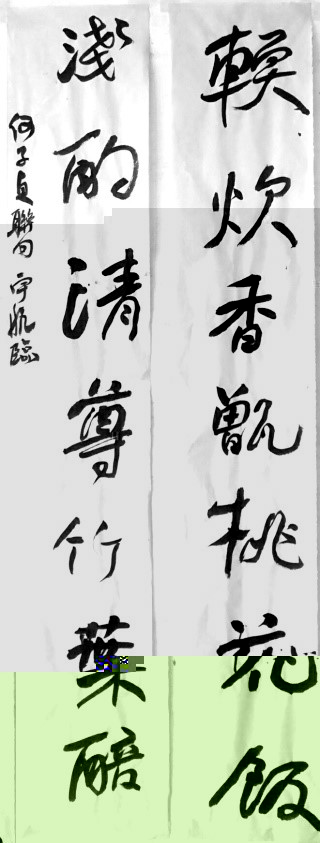 輭炊香甑桃花飯
淺酌清尊竹葉醅
何子貞聯句 宇航臨